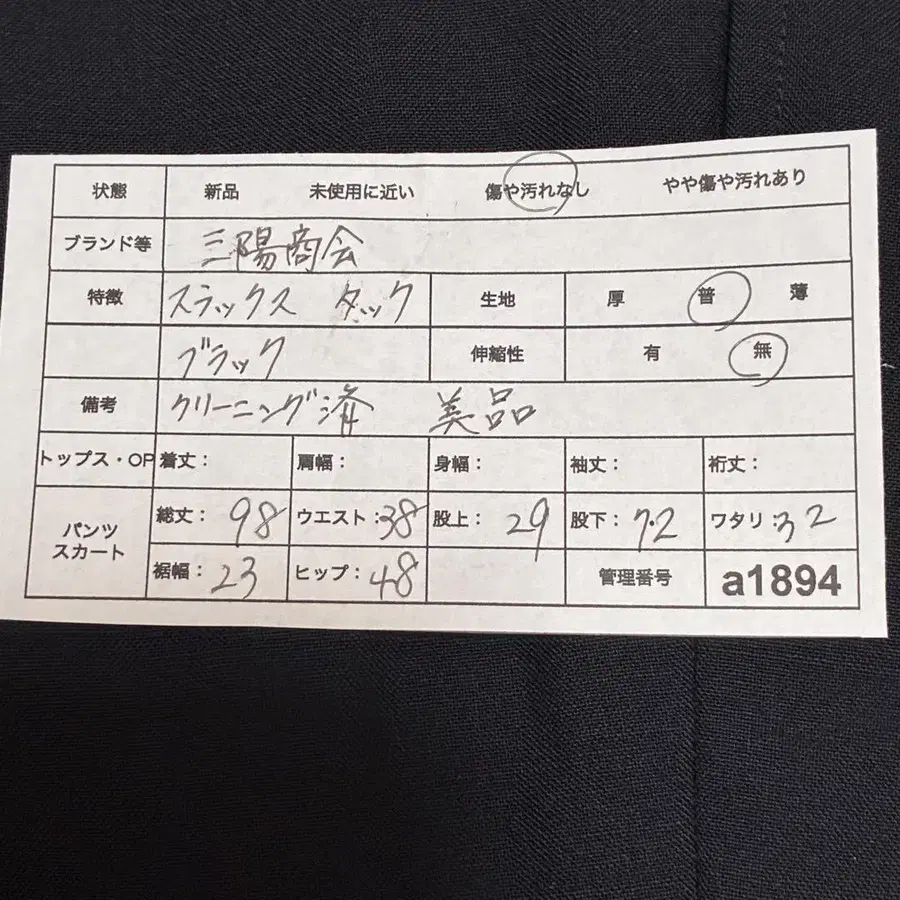 状態 新品 未使用に近い 傷や汚れなし やや傷や汚れあり
ブランド等 三陽商会
特徴 スラックス タック 生地 厚 普 薄
ブラック 伸縮性 有 無
備考 クリーニング済 美品
トップス・OP 着丈： 肩幅： 身幅： 袖丈： 裄丈：
パンツ スカート 総丈：98 ウエスト：38 股上：29 股下：72 ワタリ：32
裾幅：23 ヒップ：48 管理番号 a1894